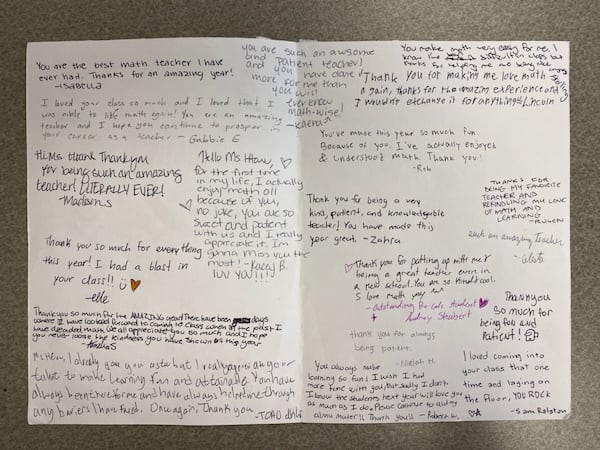 You are the best math teacher I have
ever had. Thanks for an amazing year!
-ISABELLA
I loved your class so much and I loved that I
was able to like math again! You are an amazing
teacher and I hope you continue to prosper in
your career as a teacher - Gabbie E
you are such an awsome
and patient teacher!
you have done
more for me than
you will
ever know
math-wise!
-Kaena
Hi Ms. thank Thankyou
for being such an amazing
teacher! LITERALLY EVER!
-Madison S
Hello Ms Hew,
for the first time
in my life, I actually
enjoy math all
because of you,
no joke, you are so
sweet and patient
with us and I really
appricate it. Im
gonna miss you the
most! - Kacey B.
luv YOU!!!!
Thank you so much for everything
this year! I had a blast in
your class!!
-elle
Thankyou so much for the AMAZING year! There have been days
where I have looked forward to coming to class when in the past I
have dreaded math. We all appreciate you so much and I hope
you never loose the kindness you have shown us this year
I already gave you a star but I really appreciate your
talent to make learning fun and attainable. You have
always been there for me and have always helped me through
any barriers I have faced. Once again, Thank you -TOAD
You make math very easy for me. I
know
for helping me
Thank You for making me love math
again, thanks for the amazing experience and
I wouldn't exchange it for anything! Lincoln
You've made this year so much fun.
Because of you, I've actually enjoyed
& understood math. Thank you!
-Rob
THANKS FOR
BEING MY FAVORITE
TEACHER AND
REKINDLING MY LOVE
OF MATH AND
LEARNING
-RUBEN
Thank you for being a very
kind, patient, and knowledgeable
teacher! You have made this
year great. -Zahra
such an amazing Teacher
-Celeste
Thank you for putting up with me &
being a great teacher even in
a new school. You are so kind & cool.
I love math yay
-outstanding student
Audrey
thank you for always
being patient.
-Nielah H.
Thankyou
so much for
being fun and
Patient!
You always make
learning so fun! I wish I had
more time with you, but sadly I don't.
I know the students next year will love you
as much as I do. Please continue to
alma mater!! Thank you!! - Robert W.
I loved coming into
your class that one
time and laying on
the floor, YOU ROCK
-Sam Ralston